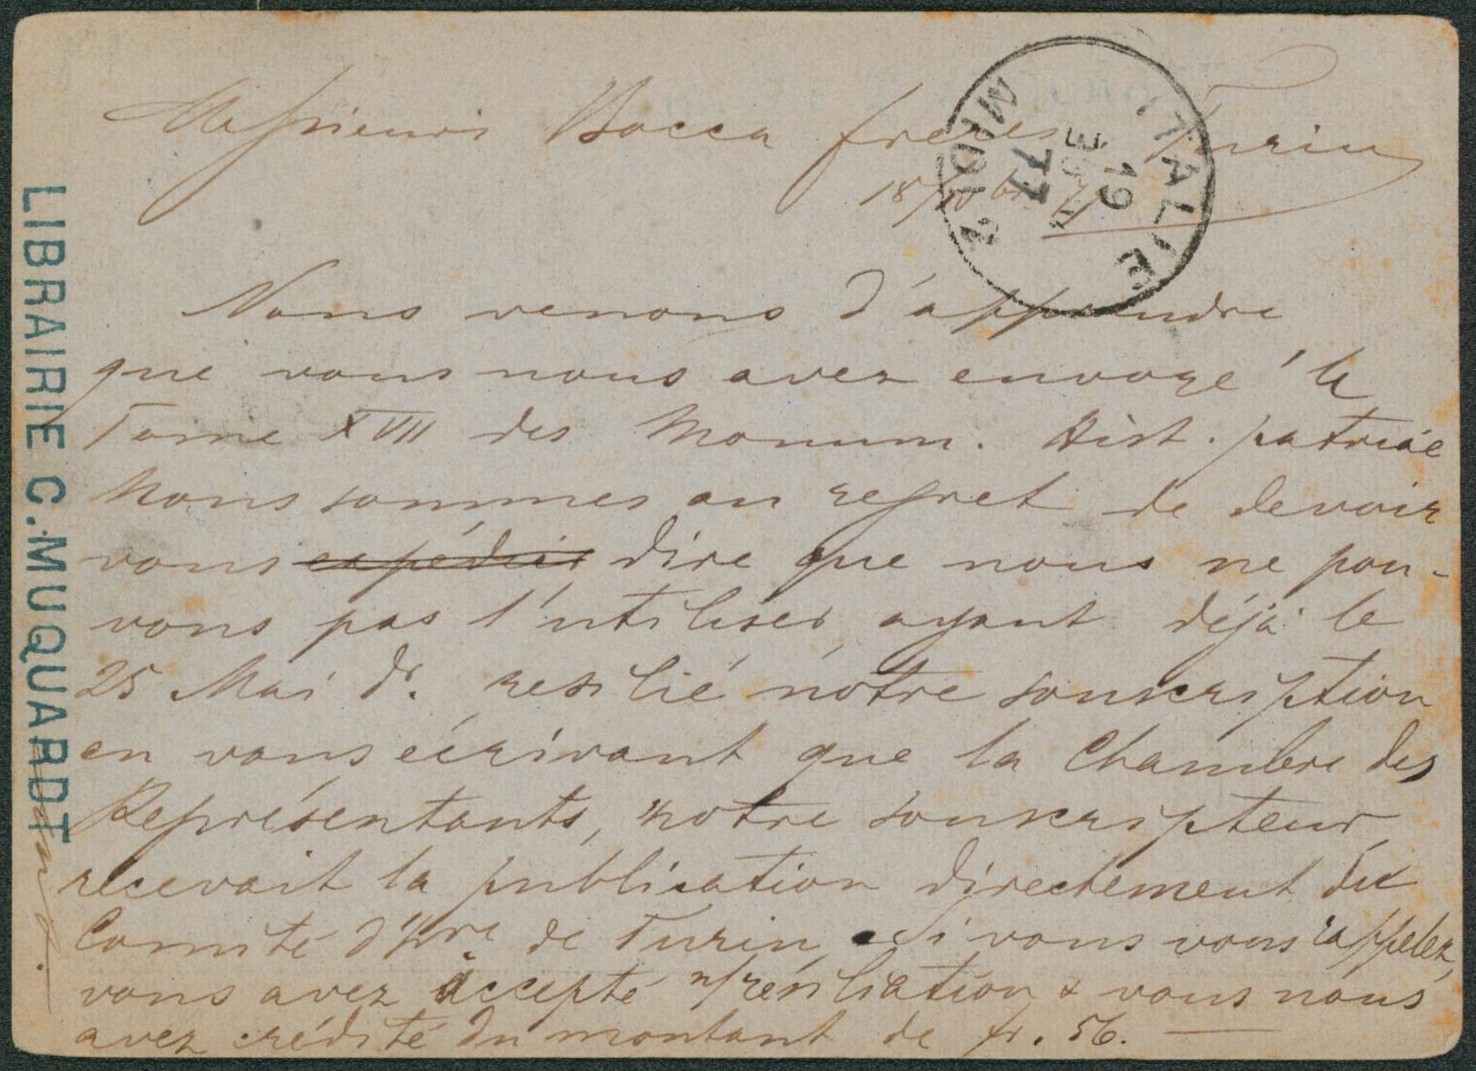 Messieurs Bocca frères Turin
18/10br 77
ITALIE
19 DIC 77
MODANE 2
Nous venons d'apprendre
que vous nous avez envoyé le
Tome XVII des Monum. Hist. patriae
Nous sommes au regret de devoir
vous expédier dire que nous ne pou-
vons pas l'utiliser ayant déjà le
25 Mai dr. résilié nôtre souscription
en vous écrivant que la Chambre des
Représentants, notre souscripteur,
recevait la publication directement du
Comité d'hre de Turin. Si vous vous rappelez,
vous avez accepté n/résiliation & vous nous
avez crédité du montant de fr. 56.
LIBRAIRIE C. MUQUARDT